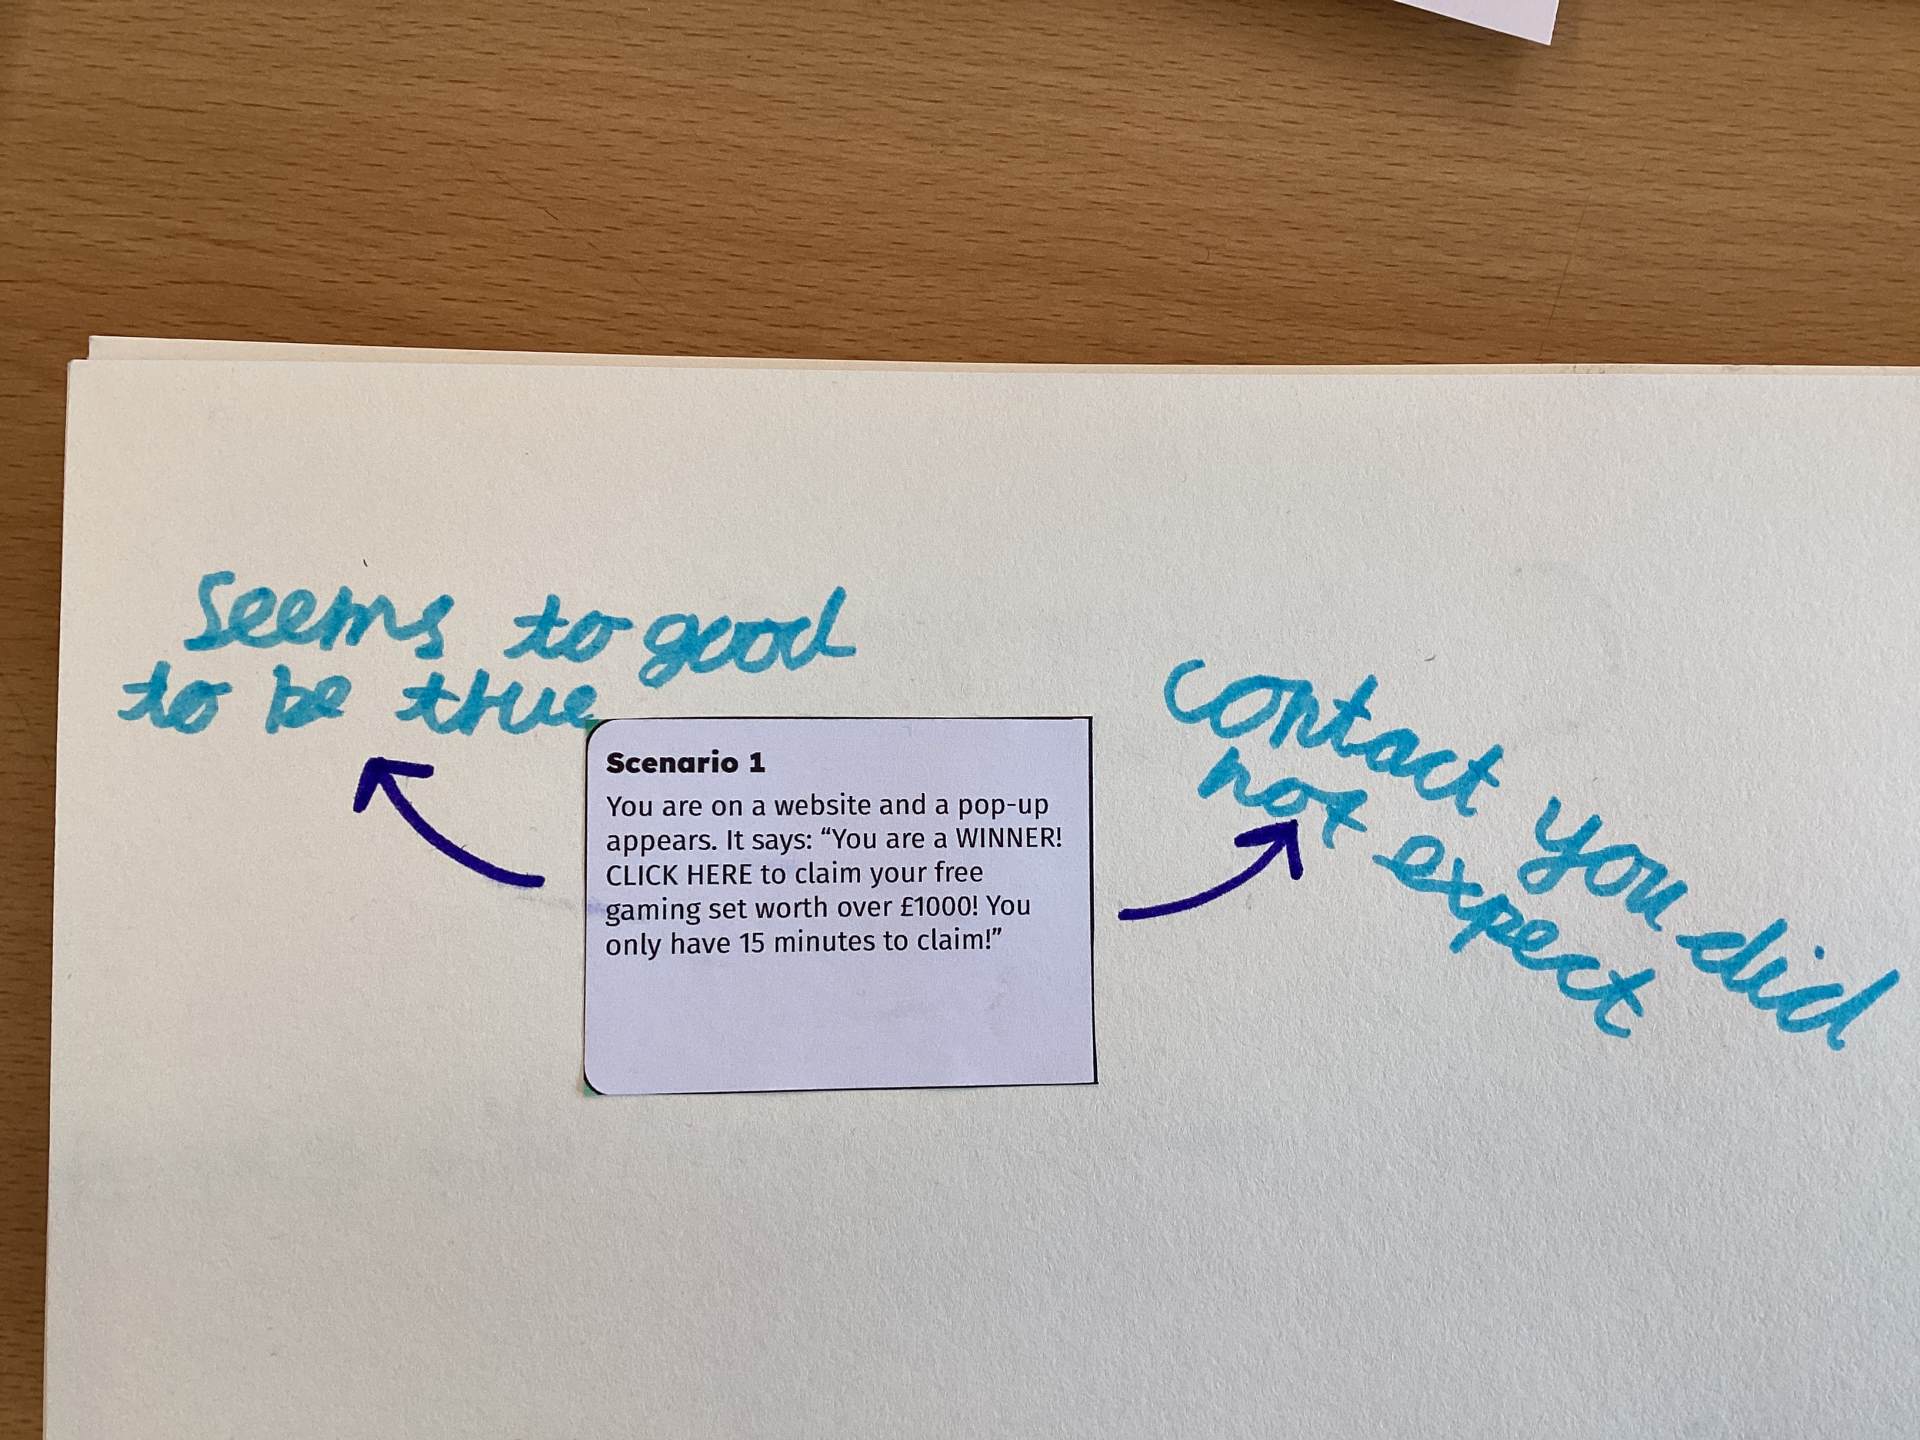 Seems to good
to be true
Scenario 1
You are on a website and a pop-up
appears. It says: “You are a WINNER!
CLICK HERE to claim your free
gaming set worth over £1000! You
only have 15 minutes to claim!”
contact you did
not expect